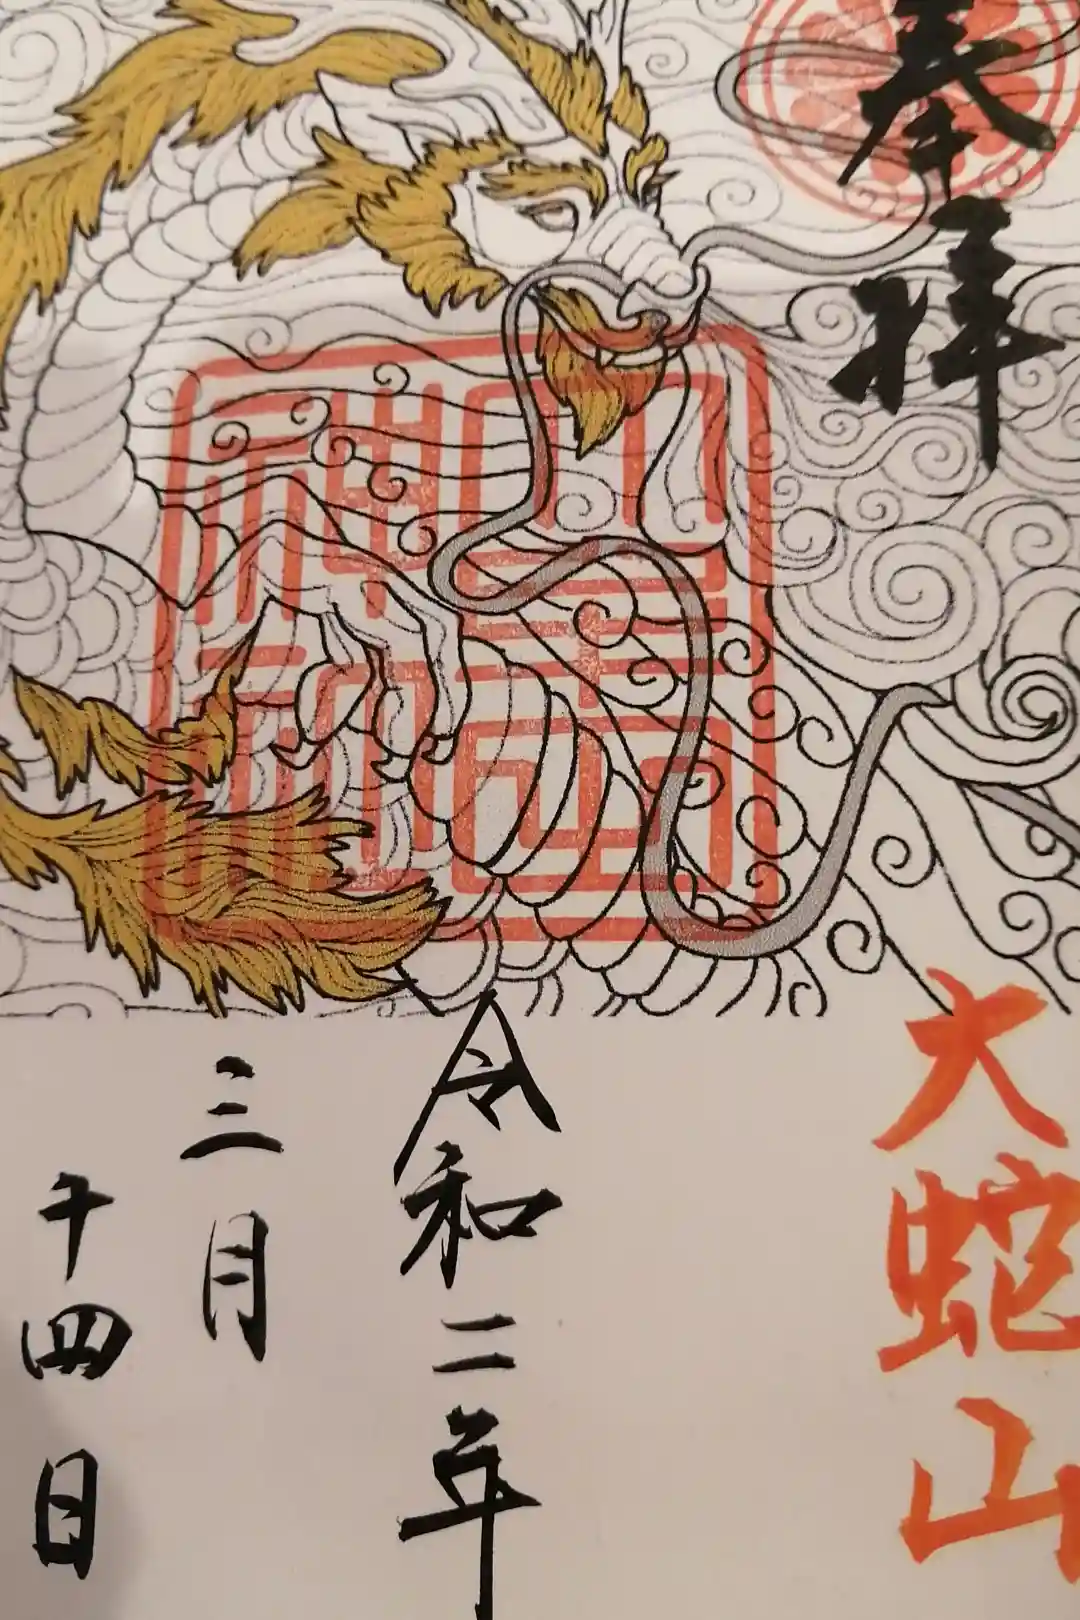 奉拝
大蛇山
神社
令和二年
三月
十四日